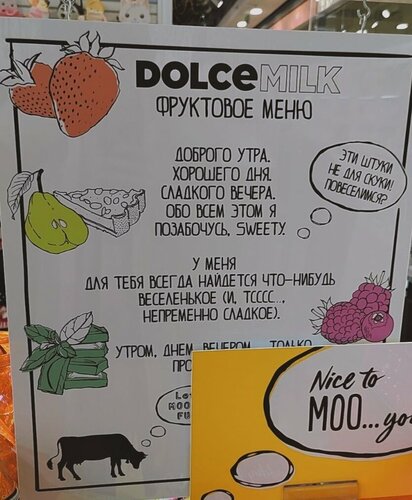 DOLCE MILK
ФРУКТОВОЕ МЕНЮ
ДОБРОГО УТРА.
ХОРОШЕГО ДНЯ.
СЛАДКОГО ВЕЧЕРА.
ОБО ВСЕМ ЭТОМ Я
ПОЗАБОЧУСЬ, SWEETY.
ЭТИ ШТУКИ
НЕ ДЛЯ СКУКИ!
ПОВЕСЕЛИМСЯ?
У МЕНЯ
ДЛЯ ТЕБЯ ВСЕГДА НАЙДЕТСЯ ЧТО-НИБУДЬ
ВЕСЕЛЕНЬКОЕ (И, ТСССС...,
НЕПРЕМЕННО СЛАДКОЕ).
УТРОМ, ДНЕМ, ВЕЧЕРОМ... ТОЛЬКО
Nice to
MOO...you